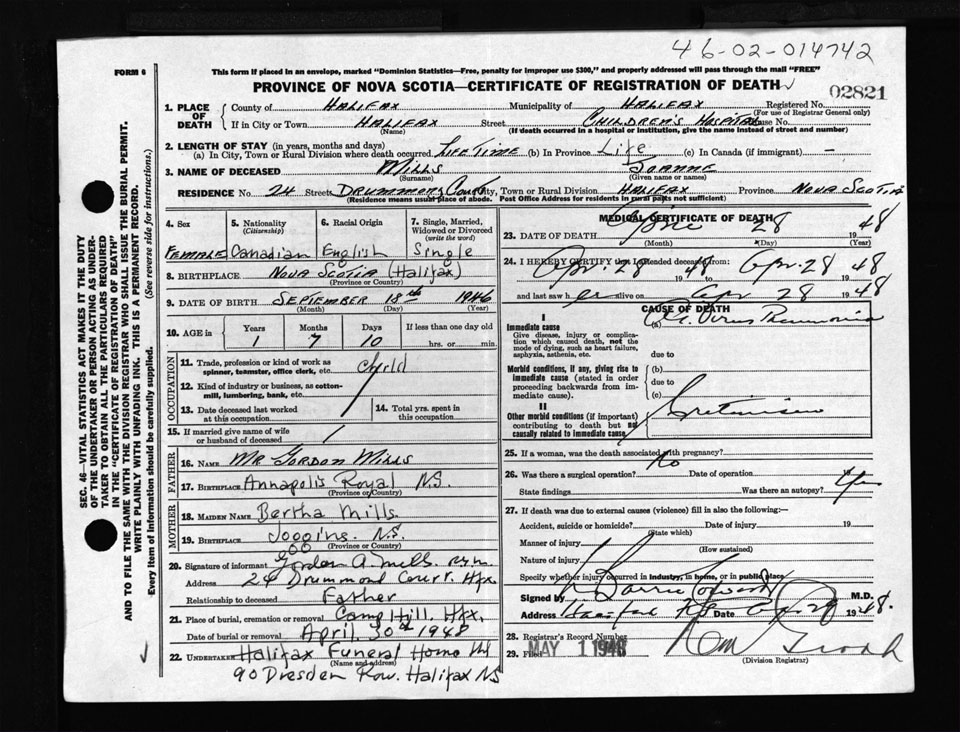 46-02-014742
FORM 6
This form if placed in an envelope, marked "Dominion Statistics—Free, penalty for improper use $300," and properly addressed will pass through the mail "FREE"
PROVINCE OF NOVA SCOTIA—CERTIFICATE OF REGISTRATION OF DEATH
02821
SEC. 46—VITAL STATISTICS ACT MAKES IT THE DUTY
OF THE UNDERTAKER OR PERSON ACTING AS UNDER-
TAKER TO OBTAIN ALL THE PARTICULARS REQUIRED
IN THE "CERTIFICATE OF REGISTRATION OF DEATH"
AND TO FILE THE SAME WITH THE DIVISION REGISTRAR WHO SHALL ISSUE THE BURIAL PERMIT.
WRITE PLAINLY WITH UNFADING INK. THIS IS A PERMANENT RECORD.
Every item of Information should be carefully supplied. (See reverse side for instructions.)
1. PLACE OF DEATH
County of HALIFAX Municipality of HALIFAX Registered No.
(For use of Registrar General only)
If in City or Town HALIFAX Street CHILDREN'S HOSPITAL House No.
(Name) (If death occurred in a hospital or institution, give the name instead of street and number)
2. LENGTH OF STAY (in years, months and days)
(a) In City, Town or Rural Division where death occurred LIFE TIME (b) In Province Life (c) In Canada (if immigrant) —
3. NAME OF DECEASED MILLS JOANNE
(Surname) (Given name or names)
RESIDENCE No. 24 Street DRUMMOND COURT City, Town or Rural Division HALIFAX Province NOVA SCOTIA
(Residence means usual place of abode. Post Office Address for residents in rural parts not sufficient)
4. Sex 5. Nationality (Citizenship) 6. Racial Origin 7. Single, Married, Widowed or Divorced (write the word)
FEMALE Canadian English Single
8. BIRTHPLACE NOVA SCOTIA (Halifax)
(Province or Country)
9. DATE OF BIRTH SEPTEMBER 18th 1946
(Month) (Day) (Year)
10. AGE in Years Months Days If less than one day old
1 7 10 hrs. or min.
OCCUPATION
11. Trade, profession or kind of work as spinner, teamster, office clerk, etc. Child
12. Kind of industry or business, as cotton-mill, lumbering, bank, etc.
13. Date deceased last worked at this occupation
14. Total yrs. spent in this occupation
15. If married give name of wife or husband of deceased
FATHER
16. NAME MR GORDON MILLS
17. BIRTHPLACE Annapolis Royal N.S.
(Province or Country)
MOTHER
18. MAIDEN NAME Bertha Mills
19. BIRTHPLACE Joggins. N.S.
(Province or Country)
20. Signature of informant Gordon A. Mills
Address 24 Drummond Court. Hfx
Relationship to deceased Father
21. Place of burial, cremation or removal Camp Hill, Hfx,
Date of burial or removal April 30th 1948
22. UNDERTAKER Halifax Funeral Home
(Name and address)
90 Dresden Row. Halifax NS
MEDICAL CERTIFICATE OF DEATH
23. DATE OF DEATH 28 1948
(Month) (Day) (Year)
24. I HEREBY CERTIFY that I attended deceased from:
Apr. 28 1948 to Apr. 28 1948
and last saw her alive on Apr 28 1948
CAUSE OF DEATH
I
Immediate cause (a) Virus Pneumonia
Give disease, injury or complication which caused death, not the mode of dying, such as heart failure, asphyxia, asthenia, etc.
due to
Morbid conditions, if any, giving rise to immediate cause (stated in order proceeding backwards from immediate cause).
(b)
due to
(c)
II
Other morbid conditions (if important) contributing to death but not causally related to immediate cause.
Cretinism
25. If a woman, was the death associated with pregnancy? No
26. Was there a surgical operation? Date of operation 19
State findings Was there an autopsy? Yes
27. If death was due to external causes (violence) fill in also the following:—
Accident, suicide or homicide? Date of injury 19
(State which)
Manner of injury
(How sustained)
Nature of injury
Specify whether injury occurred in industry, in home, or in public place
Signed by M.D.
Address Date Apr. 29 1948.
28. Registrar's Record Number
29. Filed MAY 1 1948
(Division Registrar)